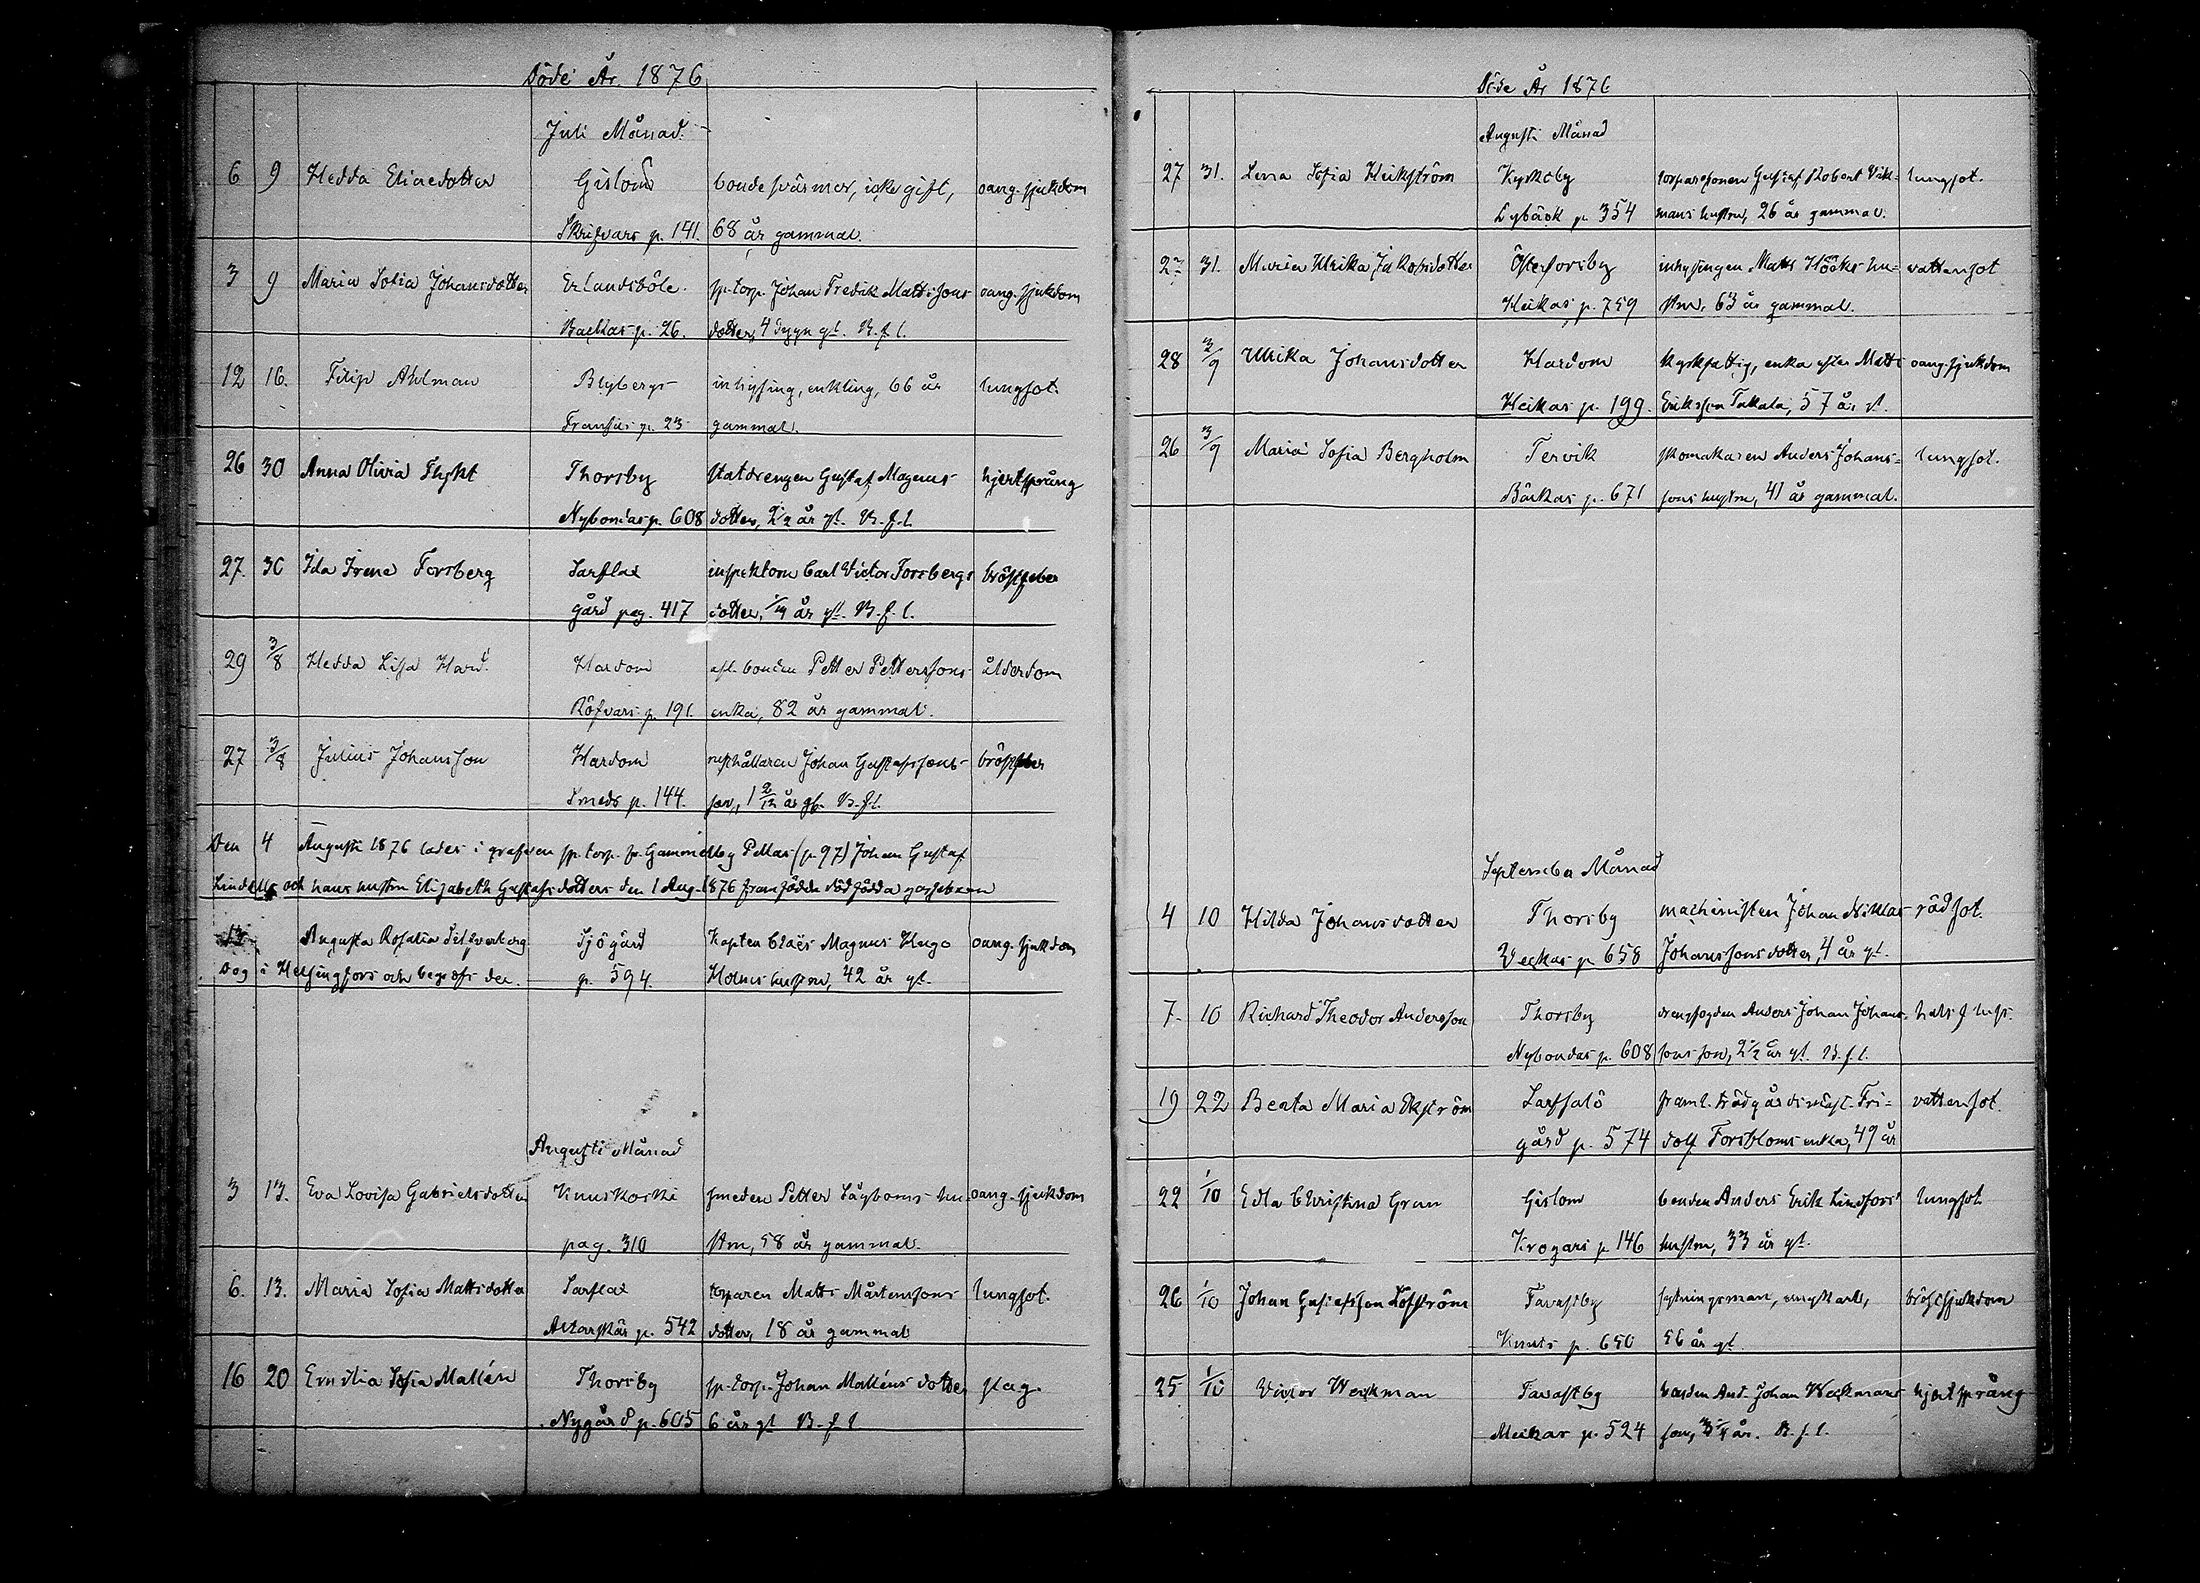 Döde År 1876
Juli Månad
6 9 Hedda Eliaedotter Gislom bonde svärmor, icke gift, oang. sjukdom
Skrifvars p. 141. 68 år gammal.
3 9 Maria Sofia Johansdotter Erlandsböle sp. torp. Johan Fredrik Mattssons oang. sjukdom
Backas p. 26. dotter, 4 dygn gl. B. f. l.
12 16. Filip Ahlman Blybergs inhysing, enkling, 66 år lungsot.
Fransas p. 23 gammal.
26 30 Anna Olivia Thorsby statdrengen Gustaf Magnus hjertsprång
Nybondas p. 608 dotter, 2 1/2 år gl. B. f. l.
27. 30 Ida Irene Forsberg Sarflax inspektorn Carl Victor Forsbergs bröstfeber
gård pag. 417 dotter, 1/4 år gl. B. f. l.
29 3/8 Hedda Lisa Hard. Hardom afl. bonden Petter Petterssons ålderdom
Röfvars p. 191. enka, 82 år gammal.
27 3/8 Julius Johansson Hardom rusthållaren Johan Gustafssons bröstfeber
Smeds p. 144. son, 1 2/12 år gl. B. f. l.
Den 4 Augusti 1876 lades i grafven sp. torp. fr. Gammelby Pellas (p. 97) Johan Gustaf
Lindells och hans hustru Elisabeth Gustafsdotters den 1 Aug. 1876 framfödda dödfödda gossebarn
13 Augusta Rosalia Silfverberg Sjögård Kapten Claës Magnus Hugo oang. sjukdom
Dog i Helsingfors och begrofs der. p. 594. Holms hustru, 42 år gl.
Augusti Månad
3 13. Eva Lovisa Gabrielsdotter Kuuskoski smeden Petter Lägboms hu- oang. sjukdom
pag. 310 stru, 58 år gammal.
6. 13. Maria Sofia Mattsdotter Sarflax torparen Matts Mårtenssons lungsot.
p. 542 dotter, 18 år gammal
16 20 Emilia Sofia Mallén Thorsby sp. torp. Johan Malléns dotter slag.
Nygård p. 605 6 år gl B. f. l.
Döde År 1876
Augusti Månad
27 31. Lena Sofia Heikström Kyrkoby torparesonen Gustaf Robert Vik- lungsot.
Lybäck p. 354 mans hustru, 26 år gammal.
27 31. Maria Ulrika Jakobsdotter Österforsby inhysingen Matts Hööks hu- vattensot
Heikas p. 759 stru, 63 år gammal.
28 3/9 Ulrika Johansdotter Hardom kyrkfattig, enka efter Matts oang. sjukdom
Heikas p. 199. Eriksson Takala, 57 år gl.
26 3/9 Maria Sofia Bergholm Tervik skomakaren Anders Johans- lungsot.
Bärkas p. 671 sons hustru, 41 år gammal.
September Månad
4 10 Hilda Johansdotter Thorsby machinisten Johan Niklas rödsot.
Veckas p 658 Johanssons dotter, 4 år gl.
7. 10 Richard Theodor Andersson Thorsby drengfogden Anders Johan Johans-
Nybondas p. 608 sons son, 2 1/2 år gl. B. f. l.
19 22 Benta Maria Ekström Sarfsalö framl. trädgårdsmäst. Fri- vattensot.
gård p. 574 dolf Forsbloms enka, 49 år
22 1/10 Edla Christina Gran Gislom bonden Anders Erik Lindfors' lungsot
Krogars p 146 hustru, 33 år gl.
26 1/10 Johan Gustafsson Löfström Tavastby sytningsman, ungkarl, bröstsjukdom
Knuts p. 650 56 år gl.
25 1/10 Victor Weckman Tavastby bonden And. Johan Weckmans hjertsprång
Meikas p. 524 son, 3/4 år. B. f. l.